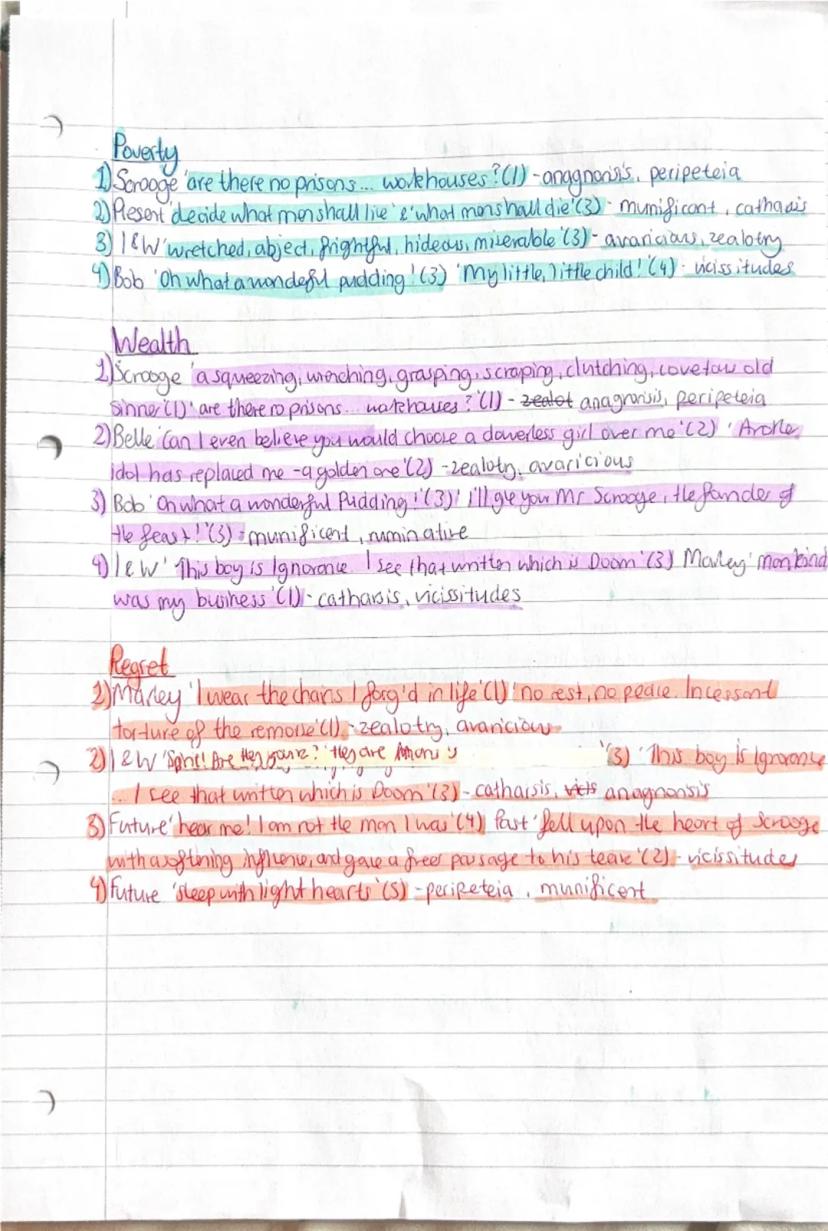 Poverty
1) Scrooge 'are there no prisons... workhouses?'(1) - anagnorisis, peripeteia
2) Present 'decide what men shall live' & 'what men shall die'(3) - munificent, catharsis
3) I&W 'wretched, abject, frightful, hideous, miserable'(3) - avaricious, zealotry
4) Bob 'Oh what a wonderful pudding!'(3) 'My little, little child!'(4) - vicissitudes
Wealth
1) Scrooge 'a squeezing, wrenching, grasping, scraping, clutching, covetous old
sinner'(1) 'are there no prisons... workhouses?'(1) - zealot anagnorisis, peripeteia
2) Belle 'Can I even believe you would choose a dowerless girl over me'(2) 'Another
idol has replaced me - a golden one'(2) - zealotry, avaricious
3) Bob 'Oh what a wonderful Pudding!'(3) 'I'll give you Mr Scrooge, the founder of
the feast!'(3) - munificent, ruminative
4) I&W 'This boy is Ignorance. I see that written which is Doom'(3) Marley 'mankind
was my business'(1) - catharsis, vicissitudes
Regret
1) Marley 'I wear the chains I forg'd in life'(1) 'no rest, no peace. Incessant
torture of the remorse'(1) - zealotry, avaricious
2) I&W 'Spirit! Are they yours?' 'they are '(3) 'This boy is Ignorance
... I see that written which is Doom'(3) - catharsis, anagnorisis
3) Future 'hear me! I am not the man I was'(4) Past 'fell upon the heart of Scrooge
with a softening influence, and gave a freer passage to his tears'(2) - vicissitudes
4) Future 'sleep with light hearts'(5) - peripeteia, munificent